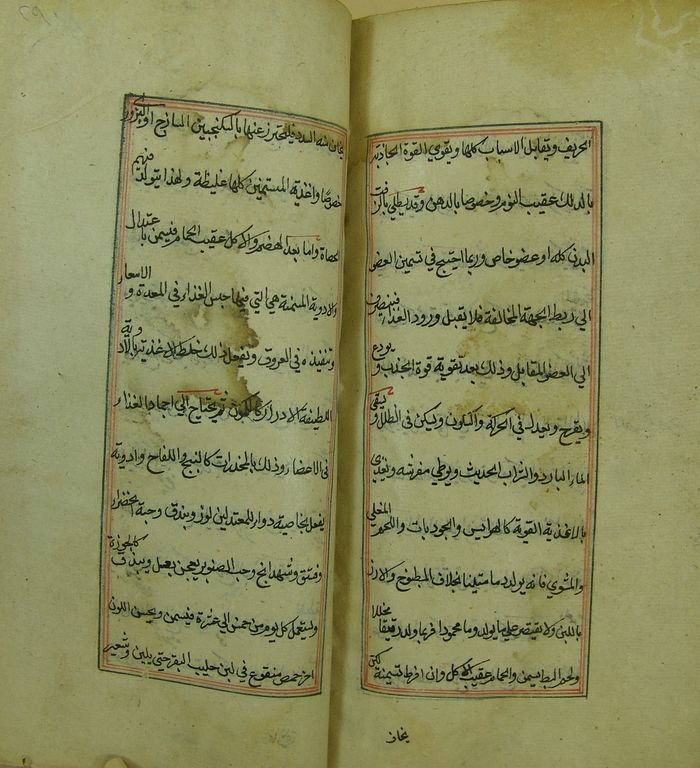 الحريف ويقابل الاسباب كلها ويقوي القوة الجاذبة
بالدلك عقيب النوم وخصوصا بالدهن وقد يطلي بالزفت
البدن كله او عضو خاص وربما احتيج في تسمين العضو
الي ربط الجهة المخالفة فلا يقبل ورود الغذا فينصرف
الي العضو المقابل وذلك بعد تقوية قوة الجذب و يودع
ويفرح ويعدل في الحركة والسكون ويسكن في الظلال و يسقي
الماء البارد والتراب الحديث ويوطي مفرشه ويغذي
بالاغذية القوية كالهرايس والجوذبات واللحم المغلي
والمشوي فانه يولد دما متينا بخلاف المطبوخ والارز
باللبن ولا يقتصر علي ما يولد دما محمودا فربما ولد رقيقا
ولحم البط يسمن والحمام عقيب الاكل وان افرط تسمينه
يخاف
يخاف منه السدد فليحترز عنها بالسكنجبين الساذج او البزوري
خصوصا واغذية المستسمنين كلها غليظة ولهذا يتولد فيهم
الحصاة واما بعد الهضم والاكل عقيب الحمام فيسمن باعتدال
والادوية المسمنة هي التي فيها حبس الغذا في المعدة و الامعا
وتنفيذه في العروق وتفعل ذلك خلط الاغذية بالادوية
اللطيفة الادرار كالكمون ثم يحتاج الي اجماد الغذا
في الاعضا وذلك بالمخدرات كالبنج واللفاح وادوية
يفعل بخاصية دوا للمعتدلين لوز وبندق وحبة الخضرا
وفستق وشهدانج وحب الصنوبر يعجن بعسل ويبندق كالجوزة
وليستعمل كل يوم من خمس الي عشرة فيسمن ويحسن اللون
اخر حمص منقوع في لبن حليب البقر حتي يلين وشعير